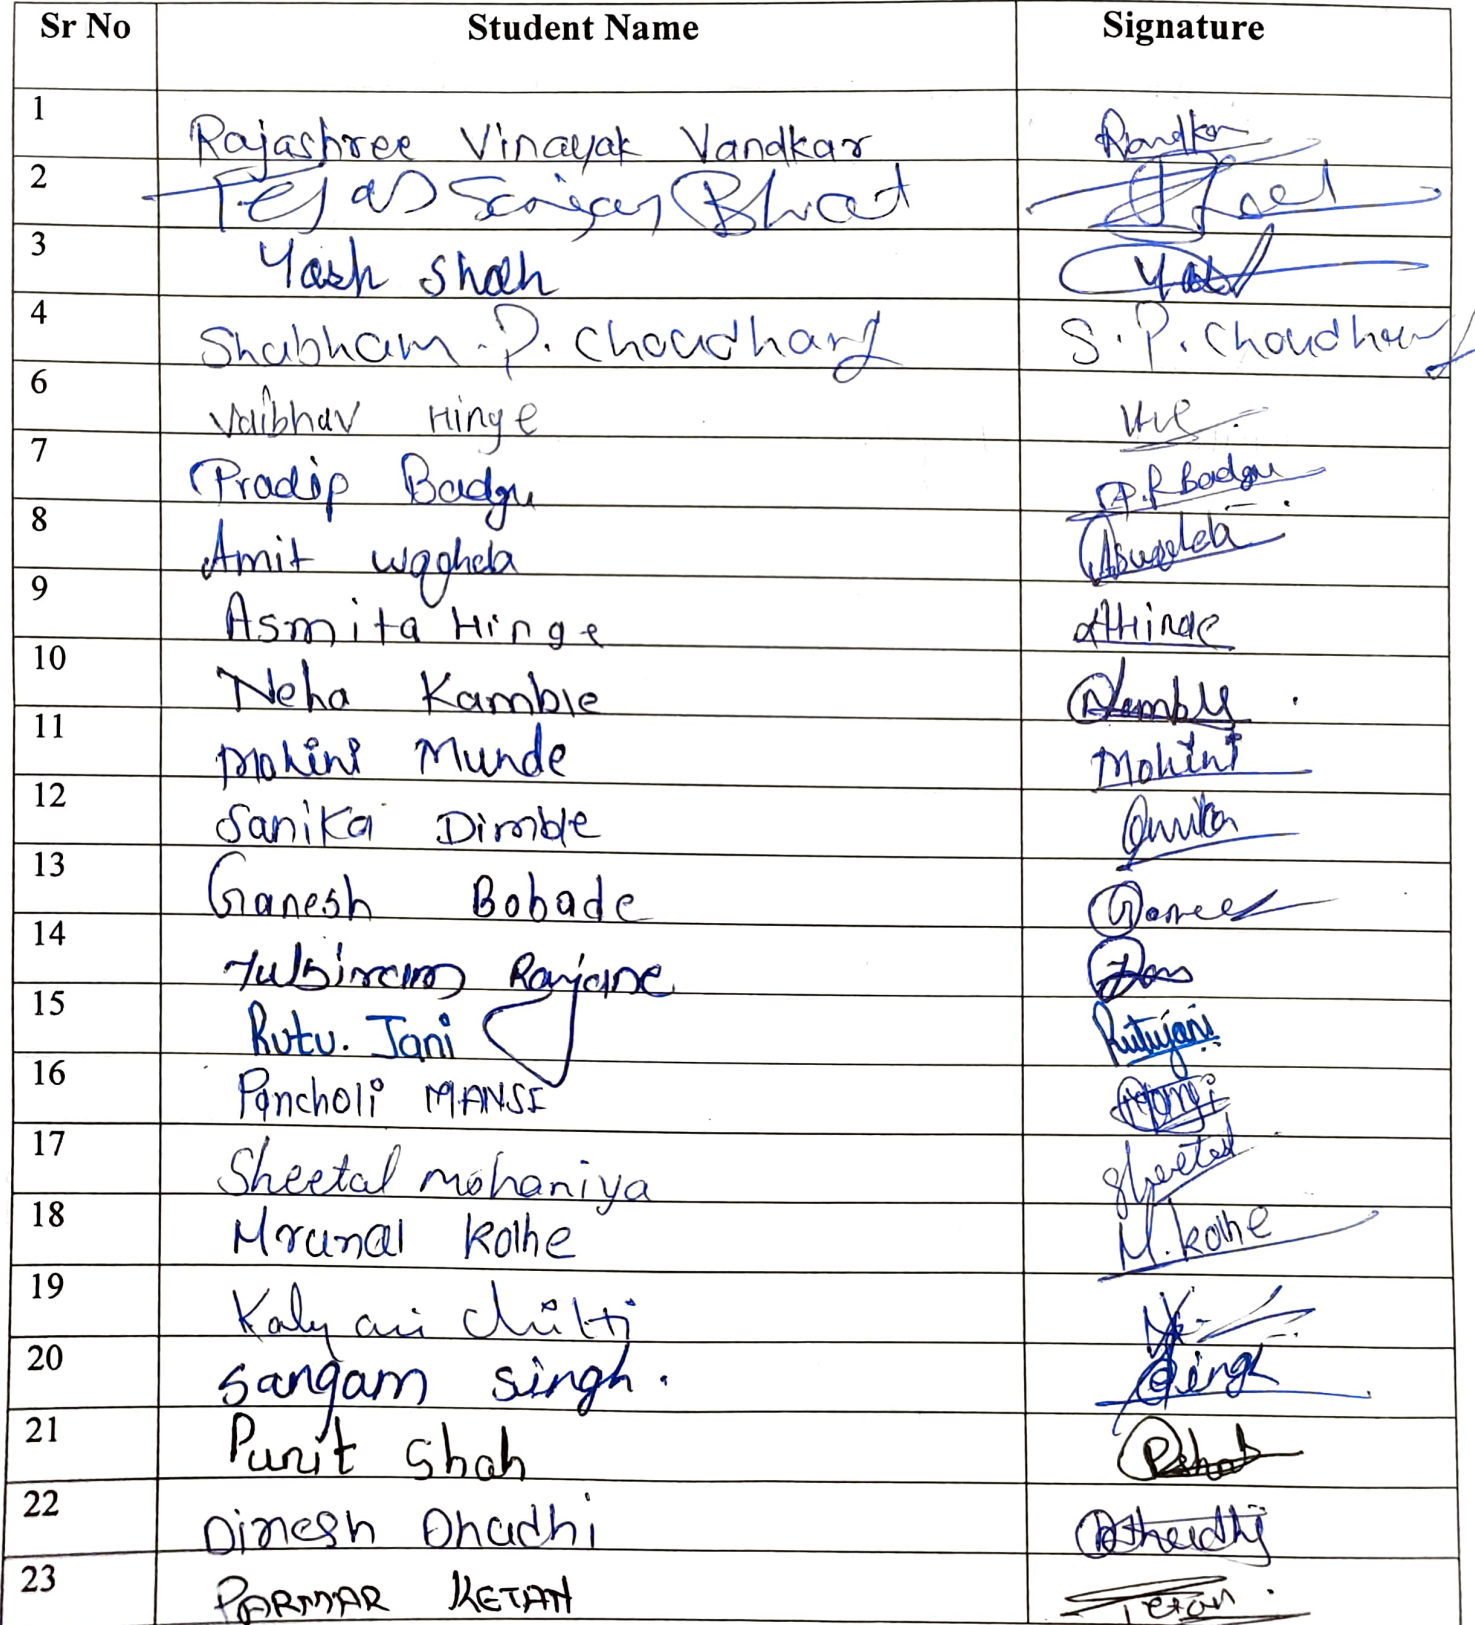 Sr No Student Name Signature
1 Rajashree Vinayak Vandkar
2 Tejas Bhat
3 Yash Shah Yash
4 Shubham. P. Choudhary S. P. Choudhary
6 Vaibhav Hinge
7 Pradip Badgu P.R Badgu
8 Amit waghela
9 Asmita Hinge AHinge
10 Neha Kamble
11 Mohini Munde Mohini
12 Sanika Dimble
13 Ganesh Bobade
14 Tulsiram Ranjane
15 Rutu. Jani Rutujani
16 Pancholi MANSI
17 Sheetal mohaniya Sheetal
18 Mrunal Kolhe M. kolhe
19 Kalyani
20 Sangam Singh. Singh
21 Punit Shah PShah
22 Dinesh Dhadhi
23 PARMAR KETAN